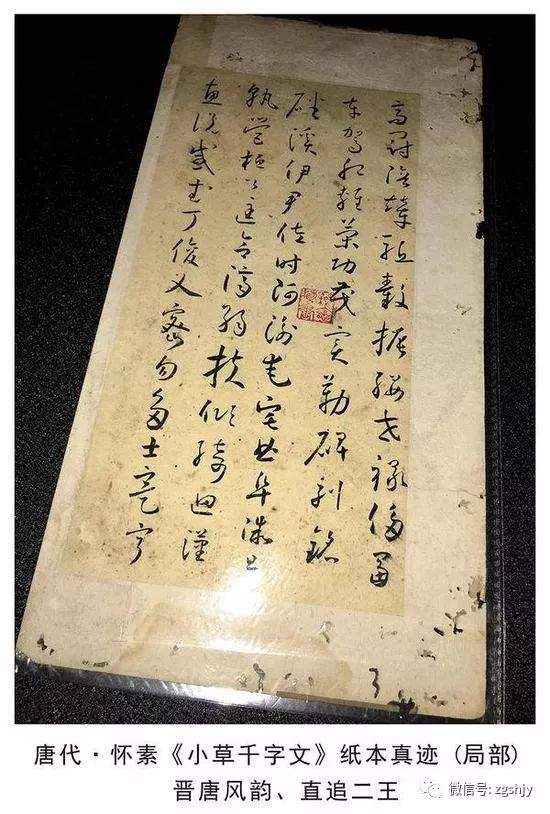 高冠陪輦驅轂振纓世祿侈富
車駕肥輕策功茂實勒碑刻銘
磻溪伊尹佐時阿衡奄宅曲阜微旦
孰營桓公匡合濟弱扶傾綺迴漢
惠說感武丁俊乂密勿多士寔寧
唐代·怀素《小草千字文》纸本真迹(局部)
晋唐风韵、直追二王
微信号: zgshjy